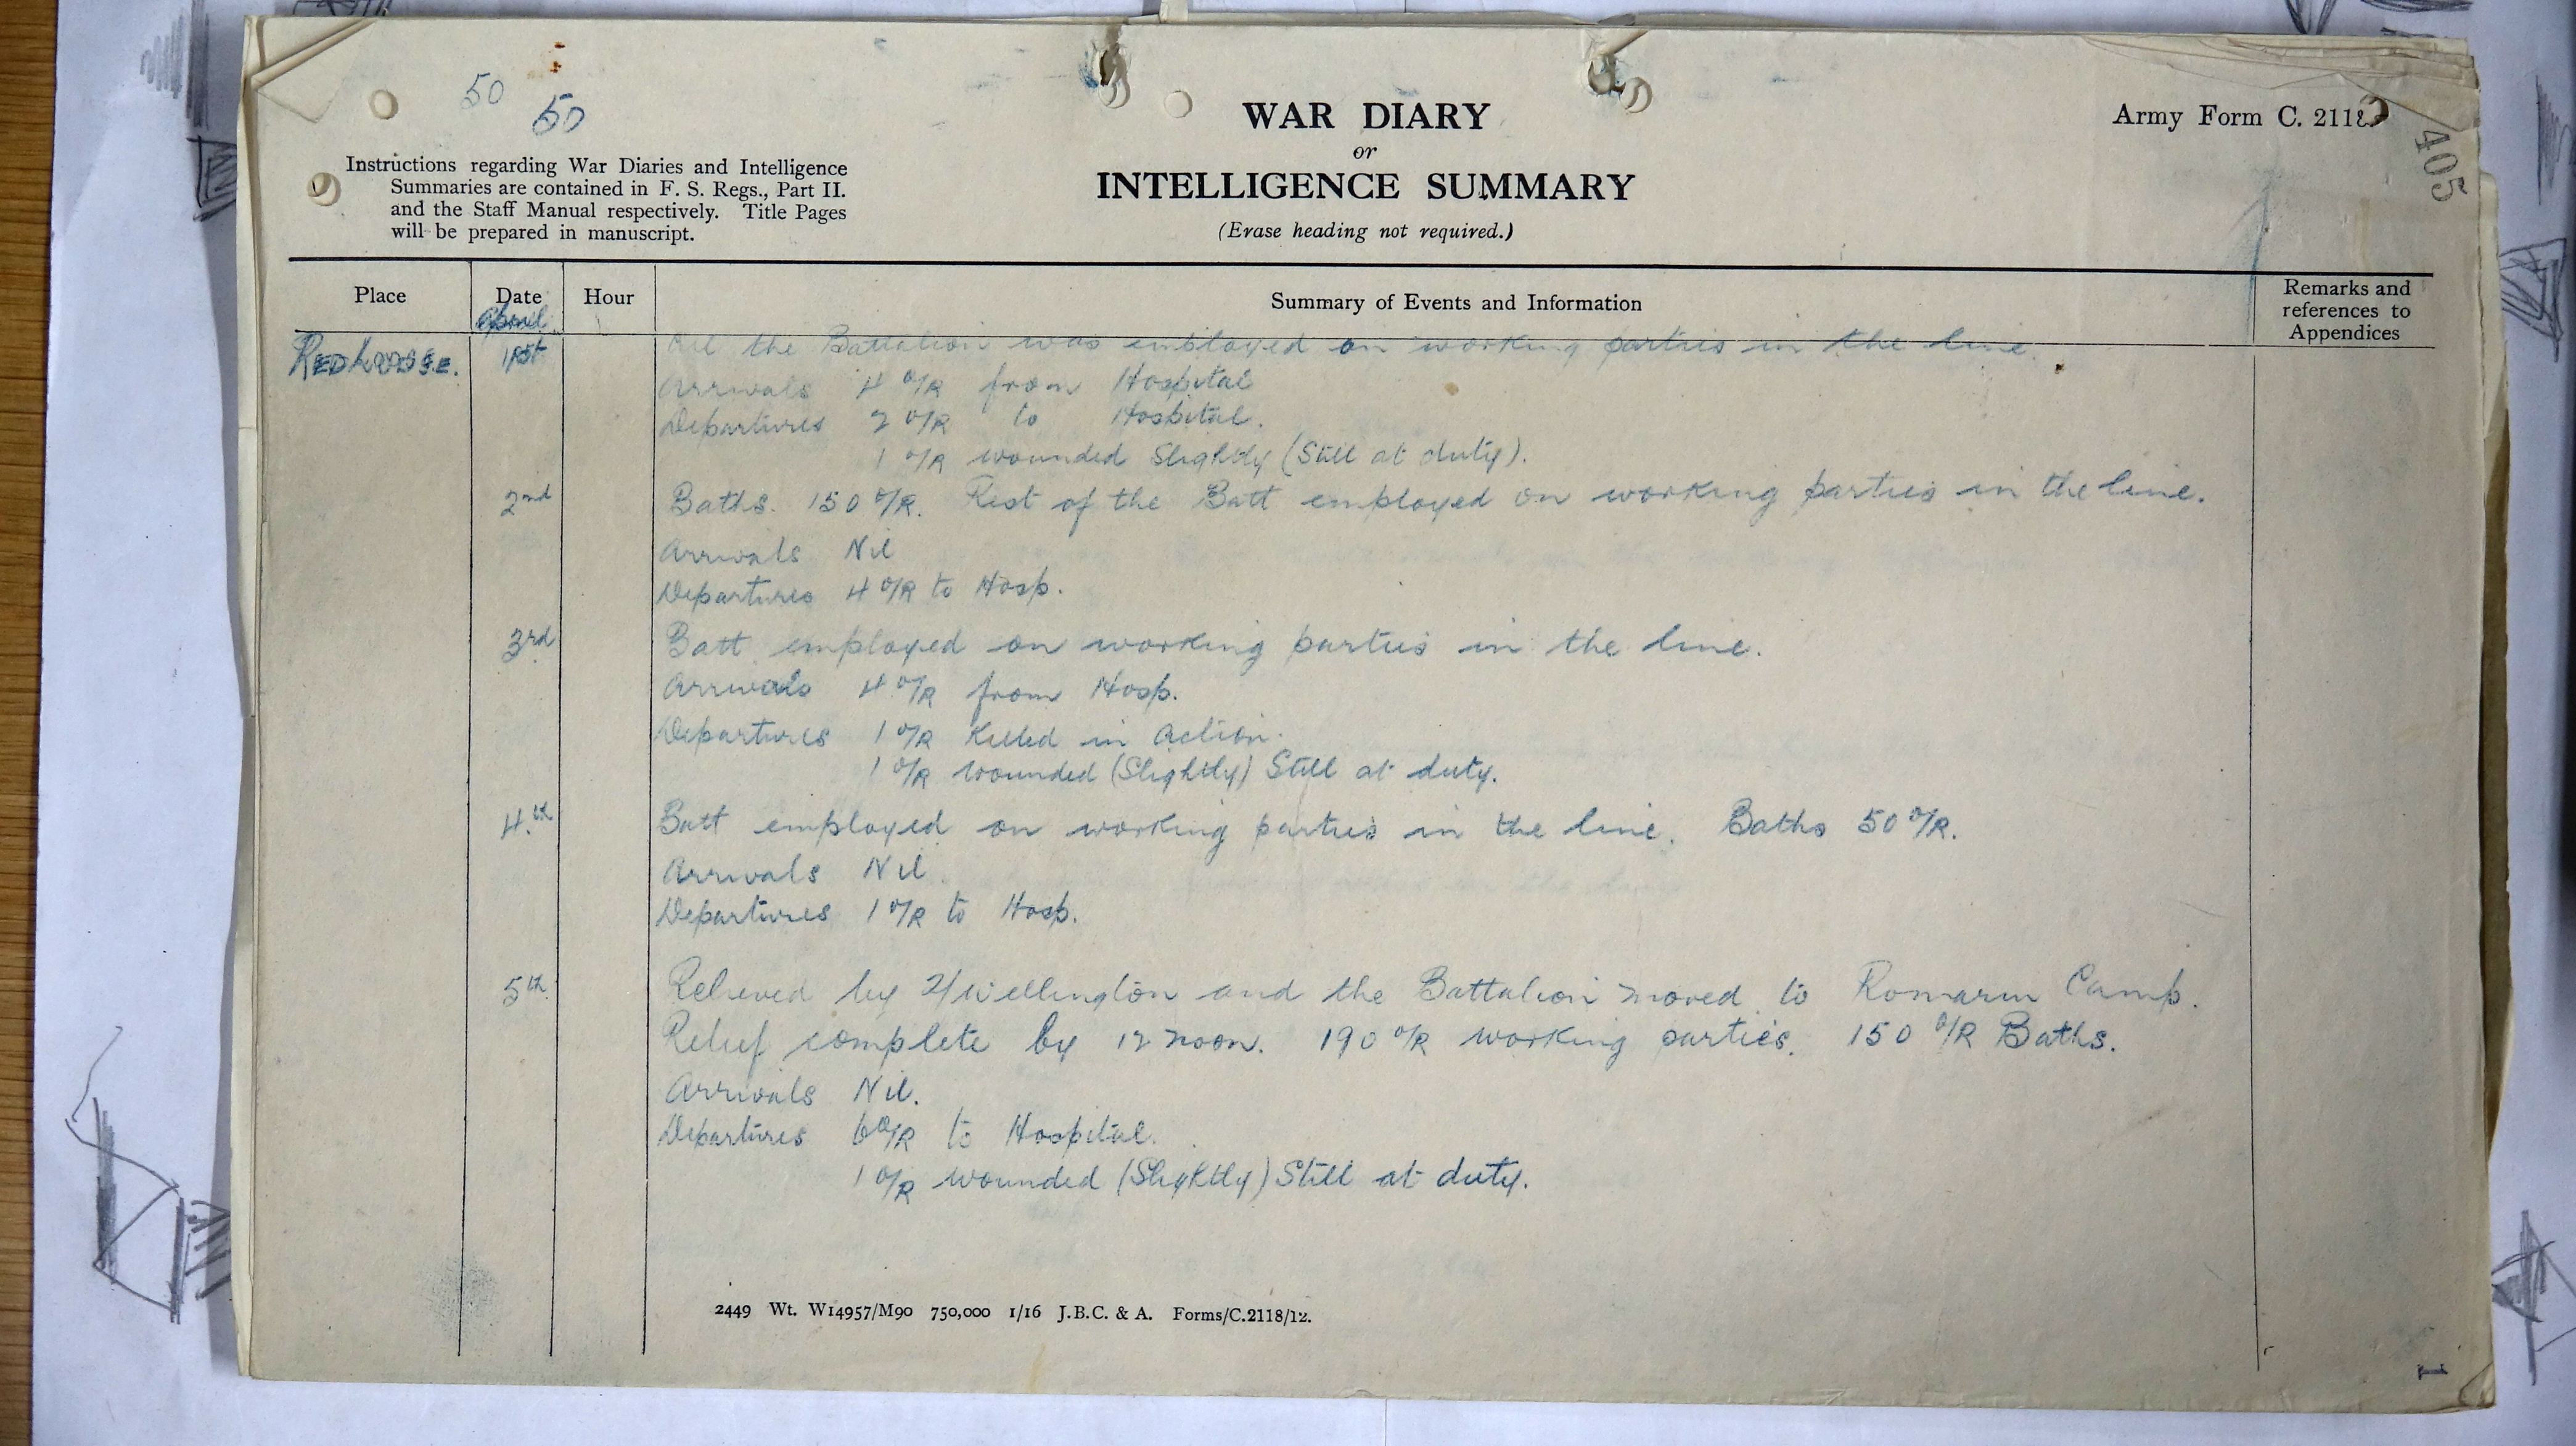 50
50
WAR DIARY
or
INTELLIGENCE SUMMARY
(Erase heading not required.)
Army Form C. 2118
405
Instructions regarding War Diaries and Intelligence
Summaries are contained in F. S. Regs., Part II.
and the Staff Manual respectively. Title Pages
will be prepared in manuscript.
Place Date Hour Summary of Events and Information Remarks and references to Appendices
April
REDLODGE. 1st All the Battalion was employed on working parties in the line.
Arrivals 4 O/R from Hospital
Departures 2 O/R to Hospital.
1 O/R wounded Slightly (Still at duty).
2nd Baths. 150 O/R. Rest of the Batt employed on working parties in the line.
Arrivals Nil
Departures 4 O/R to Hosp.
3rd Batt employed on working parties in the line.
Arrivals 4 O/R from Hosp.
Departures 1 O/R Killed in Action.
1 O/R wounded (Slightly) Still at duty.
4th Batt employed on working parties in the line. Baths 50 O/R.
Arrivals Nil
Departures 1 O/R to Hosp.
5th Relieved by 2/Wellington and the Battalion moved to Romarin Camp.
Relief complete by 12 noon. 190 O/R working parties. 150 O/R Baths.
Arrivals Nil.
Departures 6 O/R to Hospital.
1 O/R wounded (Slightly) Still at duty.
2449 Wt. W14957/M90 750,000 1/16 J.B.C. & A. Forms/C.2118/12.
1